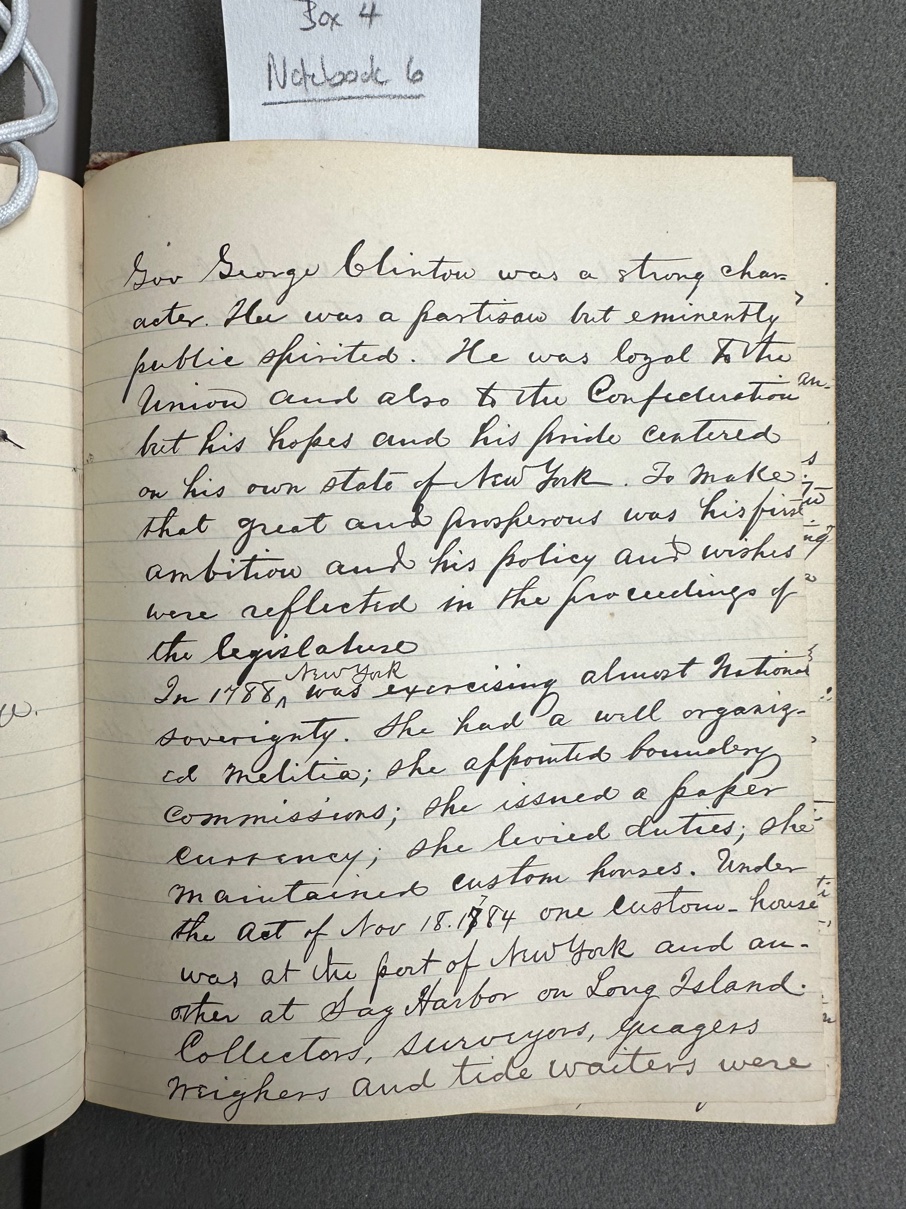 Box 4
Notebook 6
Gov George Clinton was a strong char-
acter. He was a partisan but eminently
public spirited. He was loyal to the
Union and also to the Confederation
but his hopes and his pride centered
on his own state of New York. To make
that great and prosperous was his first
ambition and his policy and wishes
were reflected in the proceedings of
the legislature
In 1788 ^ New York was exercising almost National
soverignty. She had a well organiz-
ed Melitia; she appointed boundery
commissions; she issued a paper
currency; she levied duties; she
maintained custom houses. Under
the Act of Nov 18.1784 one custom-house
was at the port of New York and an-
other at Sag Harbor on Long Island.
Collectors, surveyors, guagers
weighers and tide waiters were